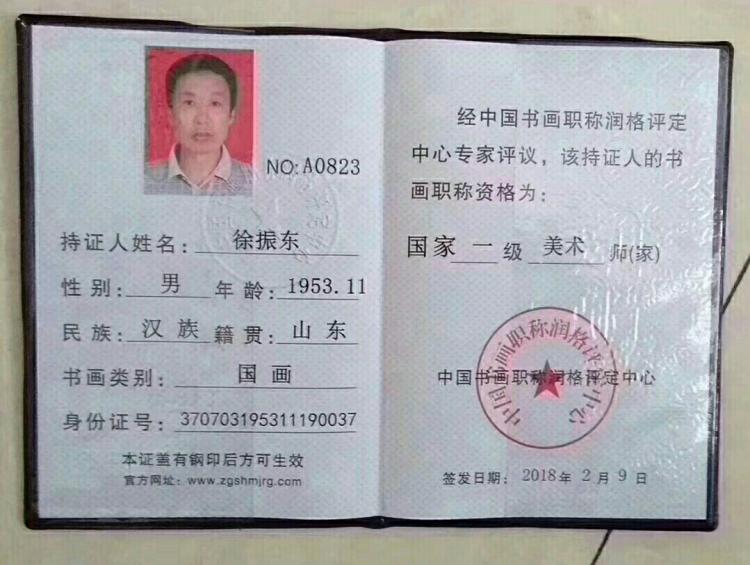 NO:A0823
持证人姓名：徐振东
性别：男 年龄：1953.11
民族：汉族 籍贯：山东
书画类别：国画
身份证号：370703195311190037
本证盖有钢印后方可生效
官方网址：www.zgshmjrg.com
经中国书画职称润格评定
中心专家评议，该持证人的书
画职称资格为：
国家一级美术师(家)
中国书画职称润格评定中心
中国书画职称润格评定中心
签发日期：2018年2月9日